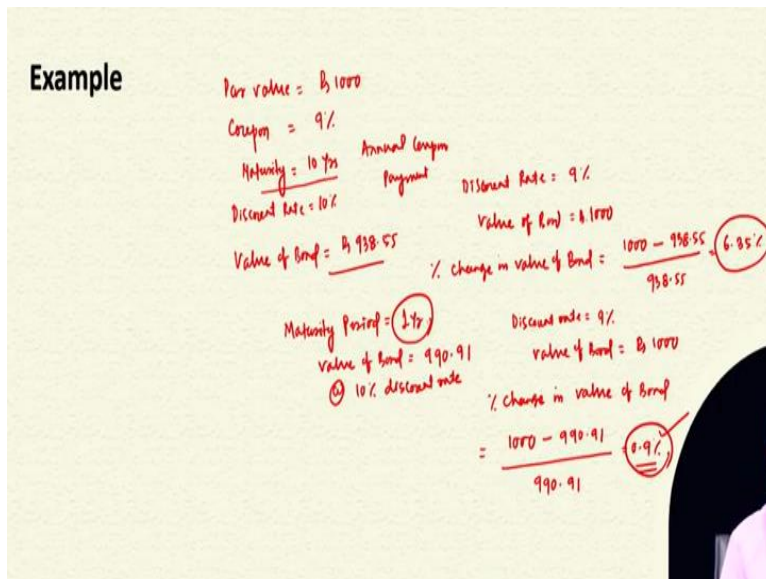 Example
Par value = ₨ 1000
Coupon = 9%
Maturity = 10 Yrs
Annual Coupon
Payment
Discount Rate = 10%
Value of Bond = ₨ 938.55
Discount Rate = 9%
Value of Bond = ₨ 1000
% change in value of Bond = 1000 - 938.55 / 938.55 = 6.85%
Maturity Period = 1 Yr,
value of Bond = 990.91
@ 10% discount rate
Discount rate = 9%
value of Bond = ₨ 1000
% change in value of Bond
= 1000 - 990.91 / 990.91 = 0.9%